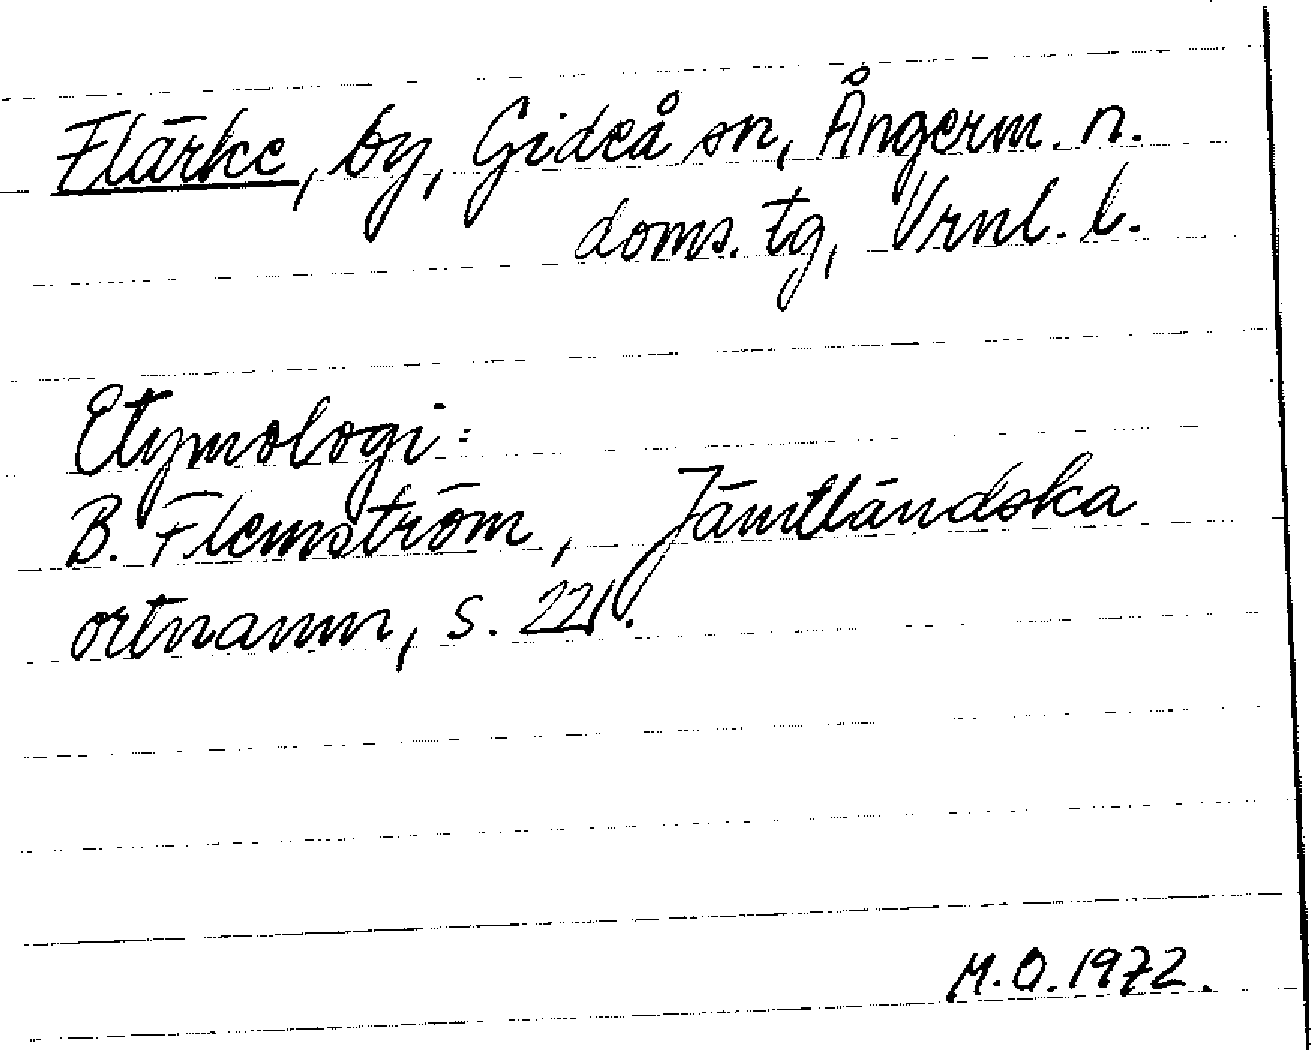 Flärke, by, Gideå sn, Ångerm. n.
doms. tg, Vrnl. l.
Etymologi:
B. Flemström, Jämtländska
ortnamn, s. 221.
M.O. 1972.